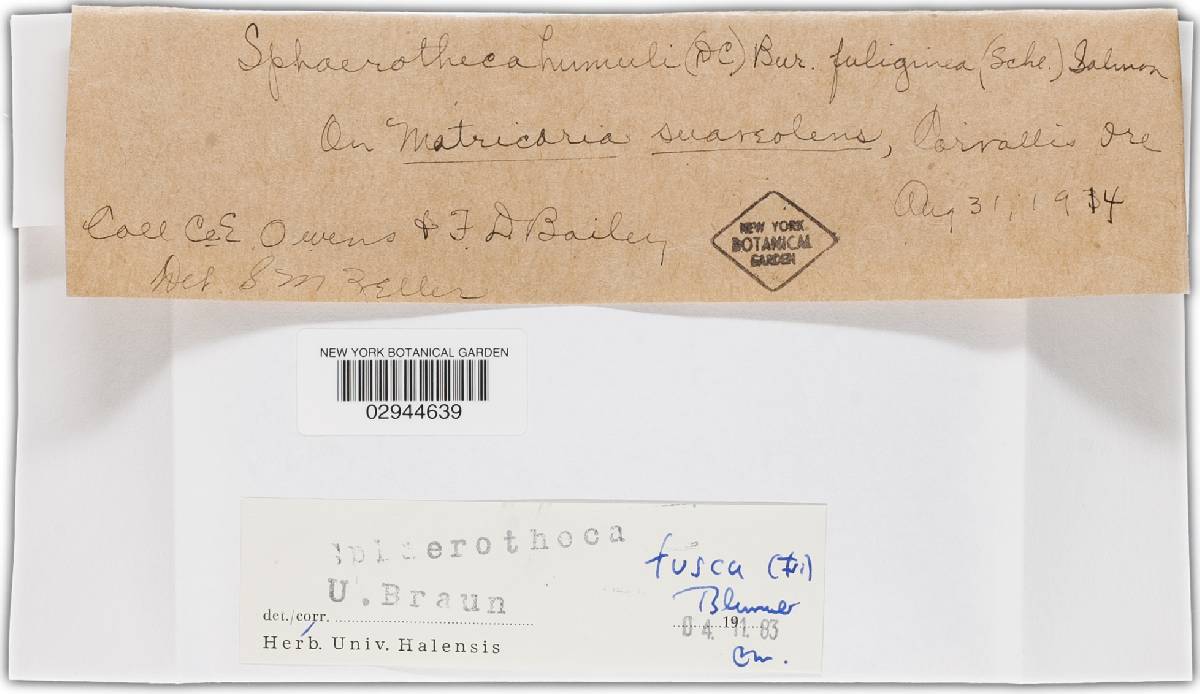 Sphaerotheca humuli (DC) Bur. fuliginea (Schl.) Salmon
On Matricaria suaveolens, Corvallis Ore
Aug 31, 1914
Coll C.E. Owens & F. D Bailey
Det. S M Zeller
NEW YORK
BOTANICAL
GARDEN
NEW YORK BOTANICAL GARDEN
02944639
Sphaerothoca
fusca (Fr.)
Blumer
U. Braun
det./corr.
04. 11. 83
19
Herb. Univ. Halensis